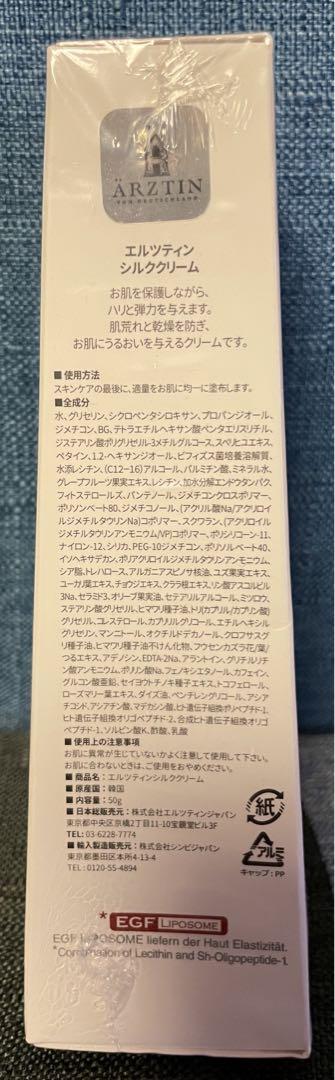 ÄRZTIN
VON DEUTSCHLAND
エルツティン
シルククリーム
お肌を保護しながら、
ハリと弾力を与えます。
肌荒れと乾燥を防ぎ、
お肌にうるおいを与えるクリームです。
■ 使用方法
スキンケアの最後に、適量をお肌に均一に塗布します。
■全成分
水、グリセリン、シクロペンタシロキサン、プロパンジオール、
ジメチコン、BG、テトラエチルヘキサン酸ペンタエリスリチル、
ジステアリン酸ポリグリセリル-3メチルグルコース、スベリヒユエキス、
ベタイン、1.2-ヘキサンジオール、ビフィズス菌培養溶解質、
水添レシチン、(C12−16)アルコール、パルミチン酸、ミネラル水、
グレープフルーツ果実エキス、レシチン、加水分解エンドウタンパク、
フィトステロールズ、パンテノール、ジメチコンクロスポリマー、
ポリソルベート80、ジメチコノール、(アクリル酸Na/アクリロイ
ルジメチルタウリンNa)コポリマー、スクワラン、(アクリロイル
ジメチルタウリンアンモニウム/VP)コポリマー、ポリシリコーン-11、
ナイロン-12、シリカ、PEG-10ジメチコン、ポリソルベート40、
イソヘキサデカン、ポリアクリロイルジメチルタウリンアンモニウム、
シア脂、トレハロース、アルガニアスピノサ核油、ユズ果実エキス、
ユーカリ葉エキス、チョウジエキス、クララ根エキス、リン酸アスコルビル
3Na、セラミド3、オリーブ果実油、セテアリルアルコール、ミツロウ、
ステアリン酸グリセリル、ヒマワリ種子油、トリ(カプリル/カプリン酸)
グリセリル、コレステロール、カプリルグリコール、エチルヘキシル
グリセリン、マンニトール、オクチルドデカノール、クロフサスグ
リ種子油、ヒマワリ種子油不けん化物、フウセンカズラ花/葉/
つるエキス、アデノシン、EDTA-2Na、アラントイン、グリチルリチ
ン酸アンモニウム、ポリリン酸Na、フェノキシエタノール、カフェイン、
グルコン酸亜鉛、セイヨウトチノキ種子エキス、トコフェロール、
ローズマリー葉エキス、ダイズ油、ペンチレングリコール、アシア
チコシド、アシアチン酸、マデカシン酸、ヒト遺伝子組換ポリペプチド-1、
ヒト遺伝子組換オリゴペプチド-2、合成ヒト遺伝子組換オリゴ
ペプチド-1、ソルビン酸K、酢酸、乳酸
■ 使用上の注意事項
お肌に異常が生じていないかよく注意して使用して下さい。
お肌に合わないときは、ご使用をおやめください。
■ 商品名：エルツティンシルククリーム
■ 原産国：韓国
■ 内容量：50g
■ 日本総販売元：株式会社エルツティンジャパン
東京都中央区京橋2丁目11-10宝鏡堂ビル3F
TEL: 03-6228-7774
■ 輸入製造販売元：株式会社シンビジャパン
東京都墨田区本所4-13-4
TEL: 0120-55-4894
紙
アルミ
キャップ：PP
*EGF LIPOSOME
EGF LIPOSOME liefern der Haut Elastizität.
*Combination of Lecithin and Sh-Oligopeptide-1.